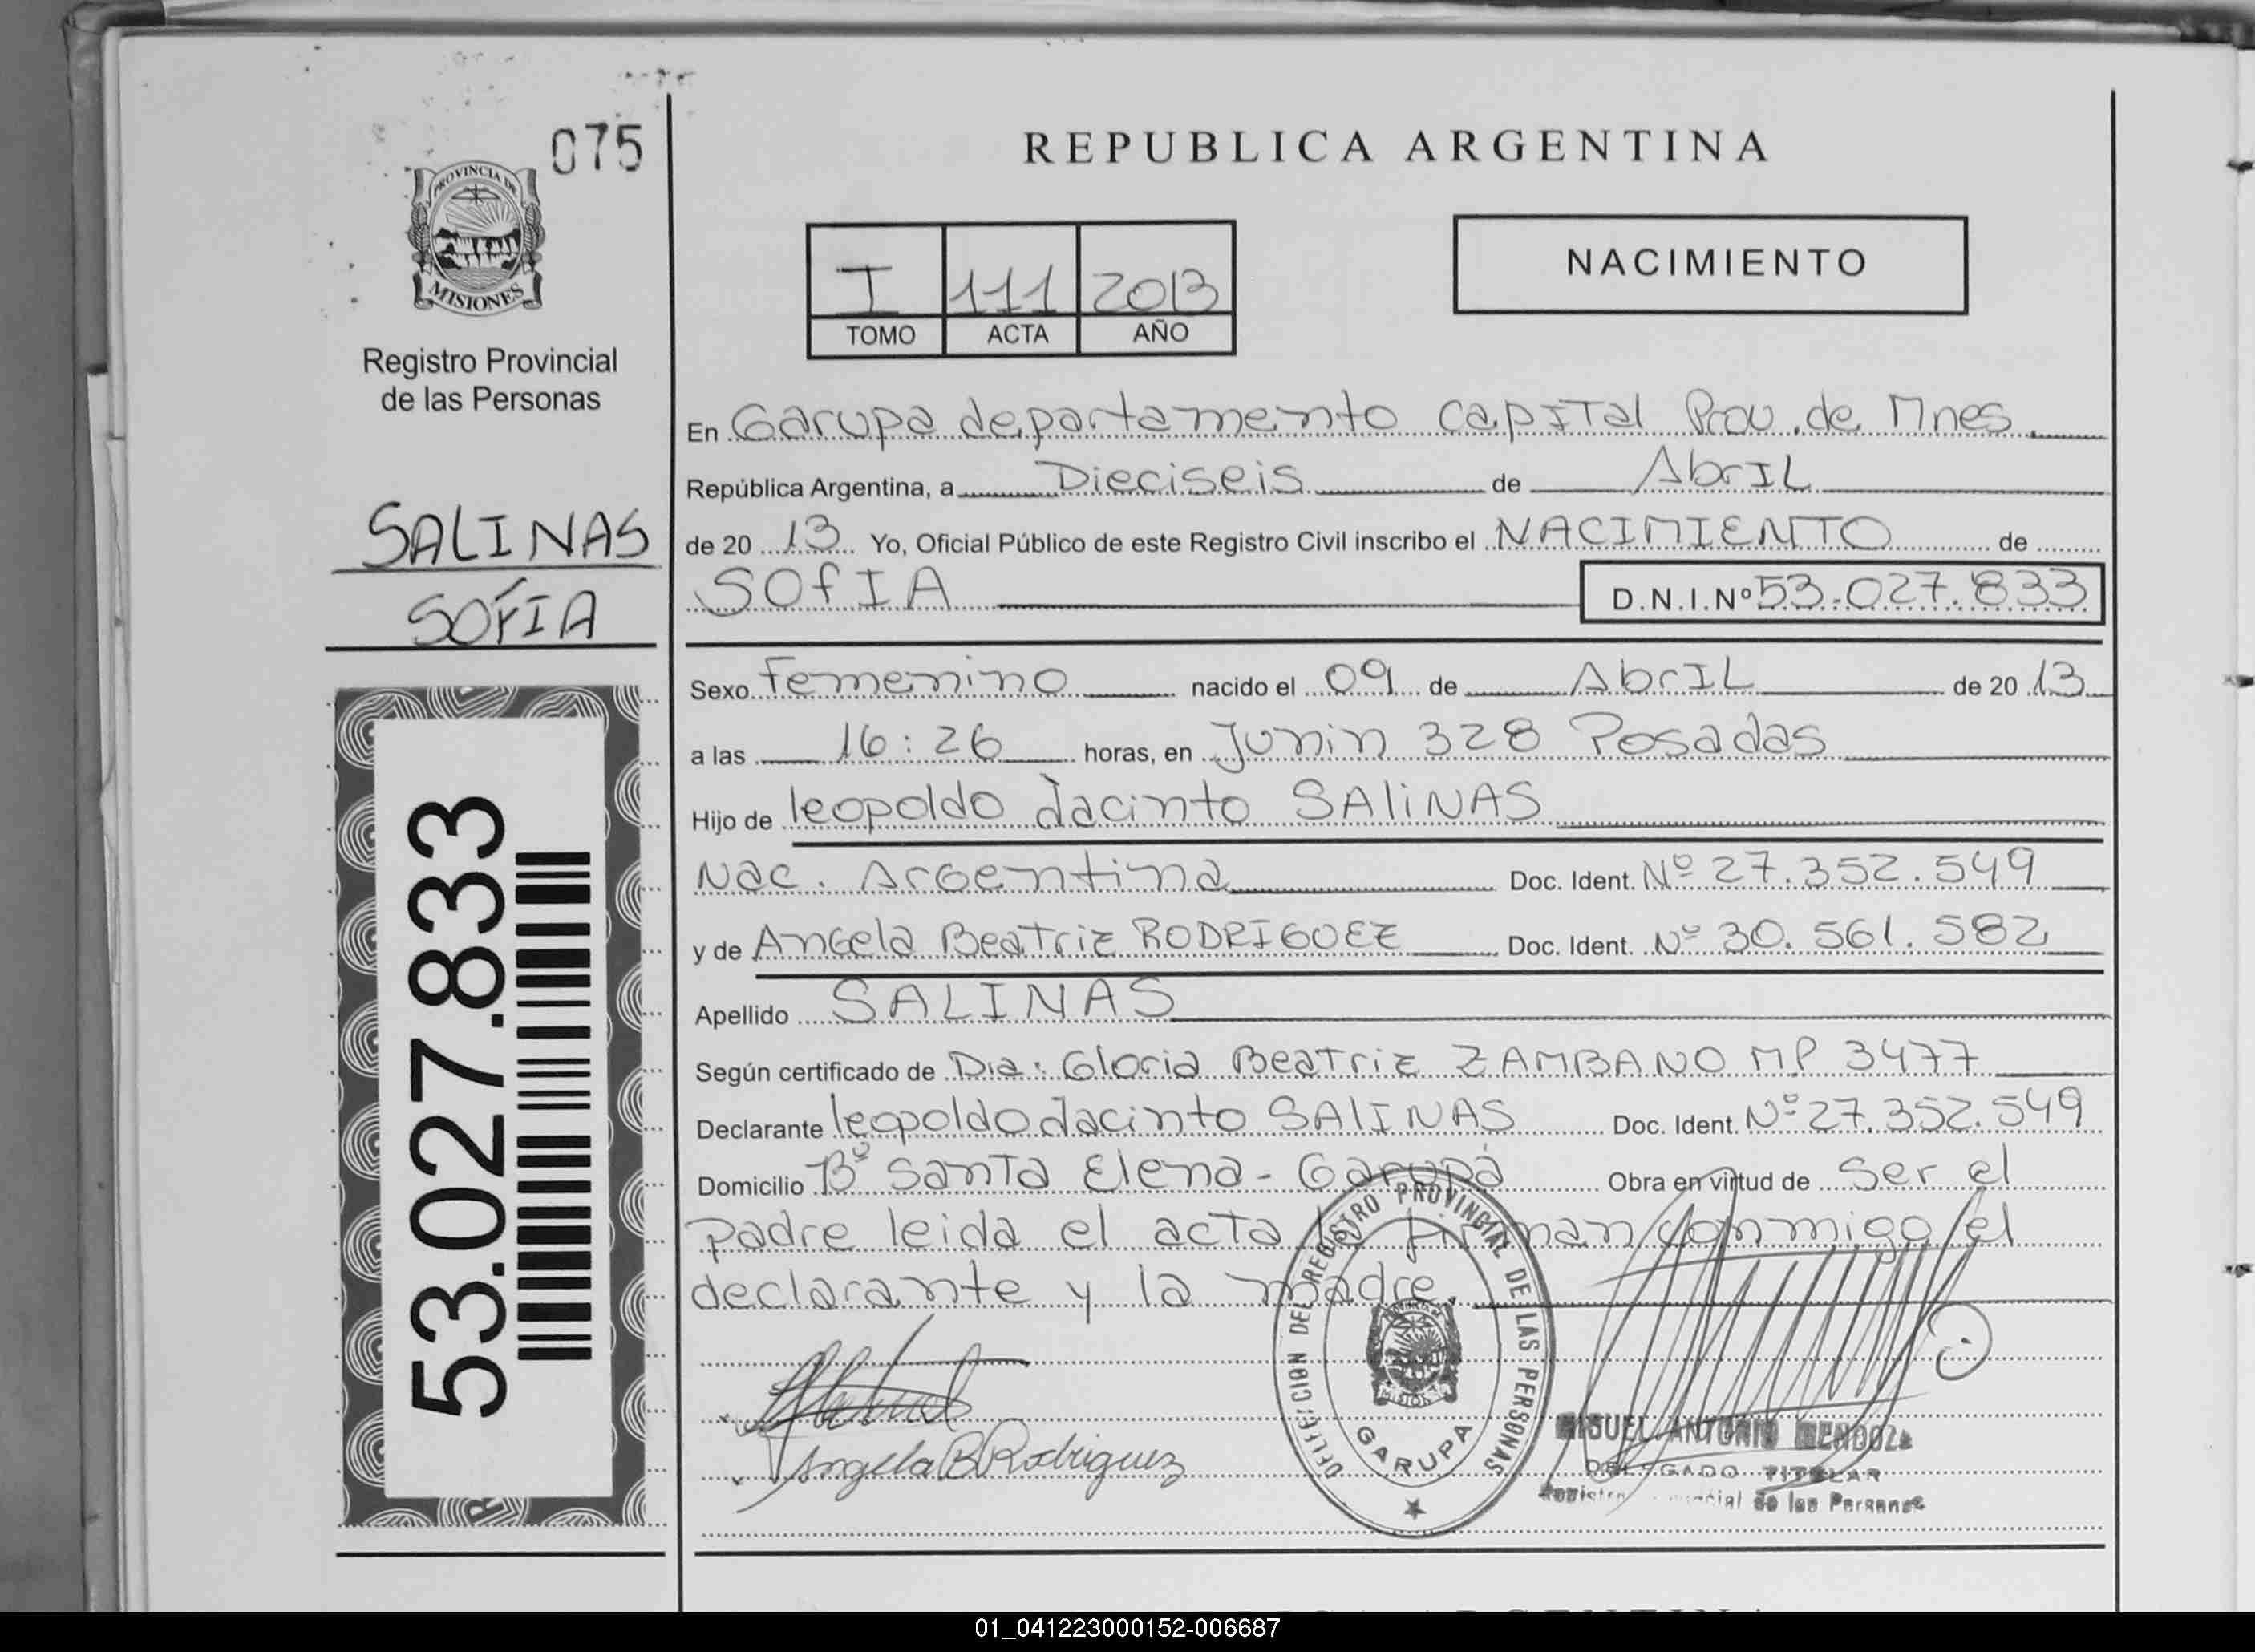 075
PROVINCIA DE
MISIONES
Registro Provincial
de las Personas
SALINAS
SOFIA
53.027.833
REPUBLICA ARGENTINA
I 111 2013
TOMO ACTA AÑO
NACIMIENTO
En Garupa departamento Capital Prov. de Mnes.
República Argentina, a Dieciseis de Abril
de 20 13 Yo, Oficial Público de este Registro Civil inscribo el NACIMIENTO de
SOFIA D.N.I.Nº 53.027.833
Sexo Femenino nacido el 09 de Abril de 20 13
a las 16:26 horas, en Junin 328 Posadas
Hijo de leopoldo Jacinto SALINAS
Nac. Argentina Doc. Ident. Nº 27.352.549
y de Angela Beatriz RODRIGUEZ Doc. Ident. Nº 30.561.582
Apellido SALINAS
Según certificado de Dra: Gloria Beatriz ZAMBANO MP 3477
Declarante leopoldo Jacinto SALINAS Doc. Ident. Nº 27.352.549
Domicilio Bº Santa Elena - Garupá Obra en virtud de Ser el
padre leida el acta la firman conmigo el
declarante y la madre.
DEL REGISTRO PROVINCIAL DE LAS PERSONAS
GARUPA
Angela B Rodriguez
MIGUEL ANTONIO MENDOZA
DELEGADO TITULAR
Registro Provincial de las Personas
01_041223000152-006687